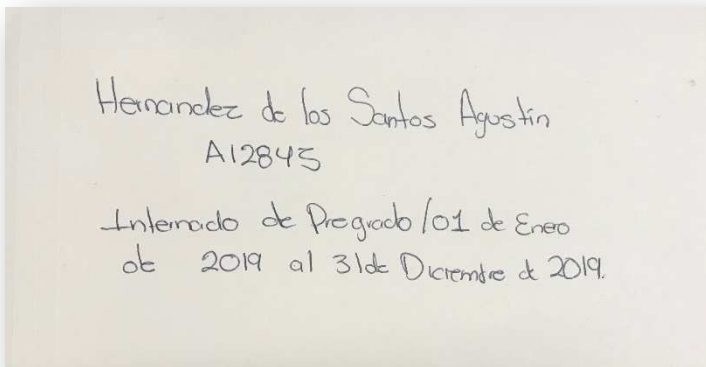 Hernandez de los Santos Agustin
A12845
Internado de Pregrado/01 de Enero
de 2019 al 31 de Diciembre de 2019.